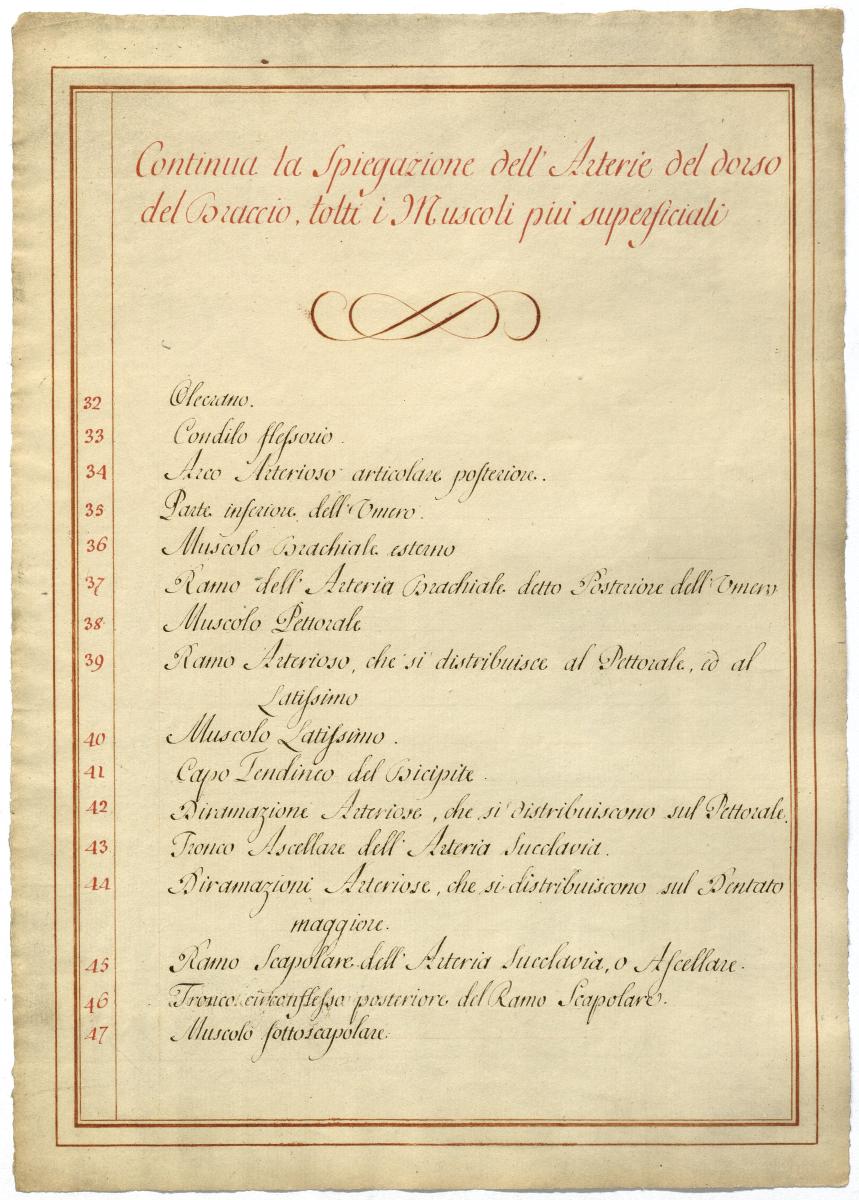 Continua la Spiegazione dell' Arterie del dorso
del Braccio, tolti i Muscoli piu' superficiali
32 Olecrano.
33 Condilo flessorio.
34 Arco Arterioso articolare posteriore.
35 Parte inferiore dell' Umero.
36 Muscolo Brachiale esterno
37 Ramo dell' Arteria Brachiale detto Posteriore dell' Umero
38 Muscolo Pettorale
39 Ramo Arterioso, che si distribuisce al Pettorale, ed al
Latissimo
40 Muscolo Latissimo.
41 Capo Tendineo del Bicipite.
42 Diramazione Arteriose, che si distribuiscono sul Pettorale.
43 Tronco Ascellare dell' Arteria Succlavia.
44 Diramazioni Arteriose, che si distribuiscono sul Dentato
maggiore.
45 Ramo Scapolare dell' Arteria Succlavia, o Ascellare.
46 Tronco circonflesso posteriore del Ramo Scapolare.
47 Muscolo sottoscapolare.